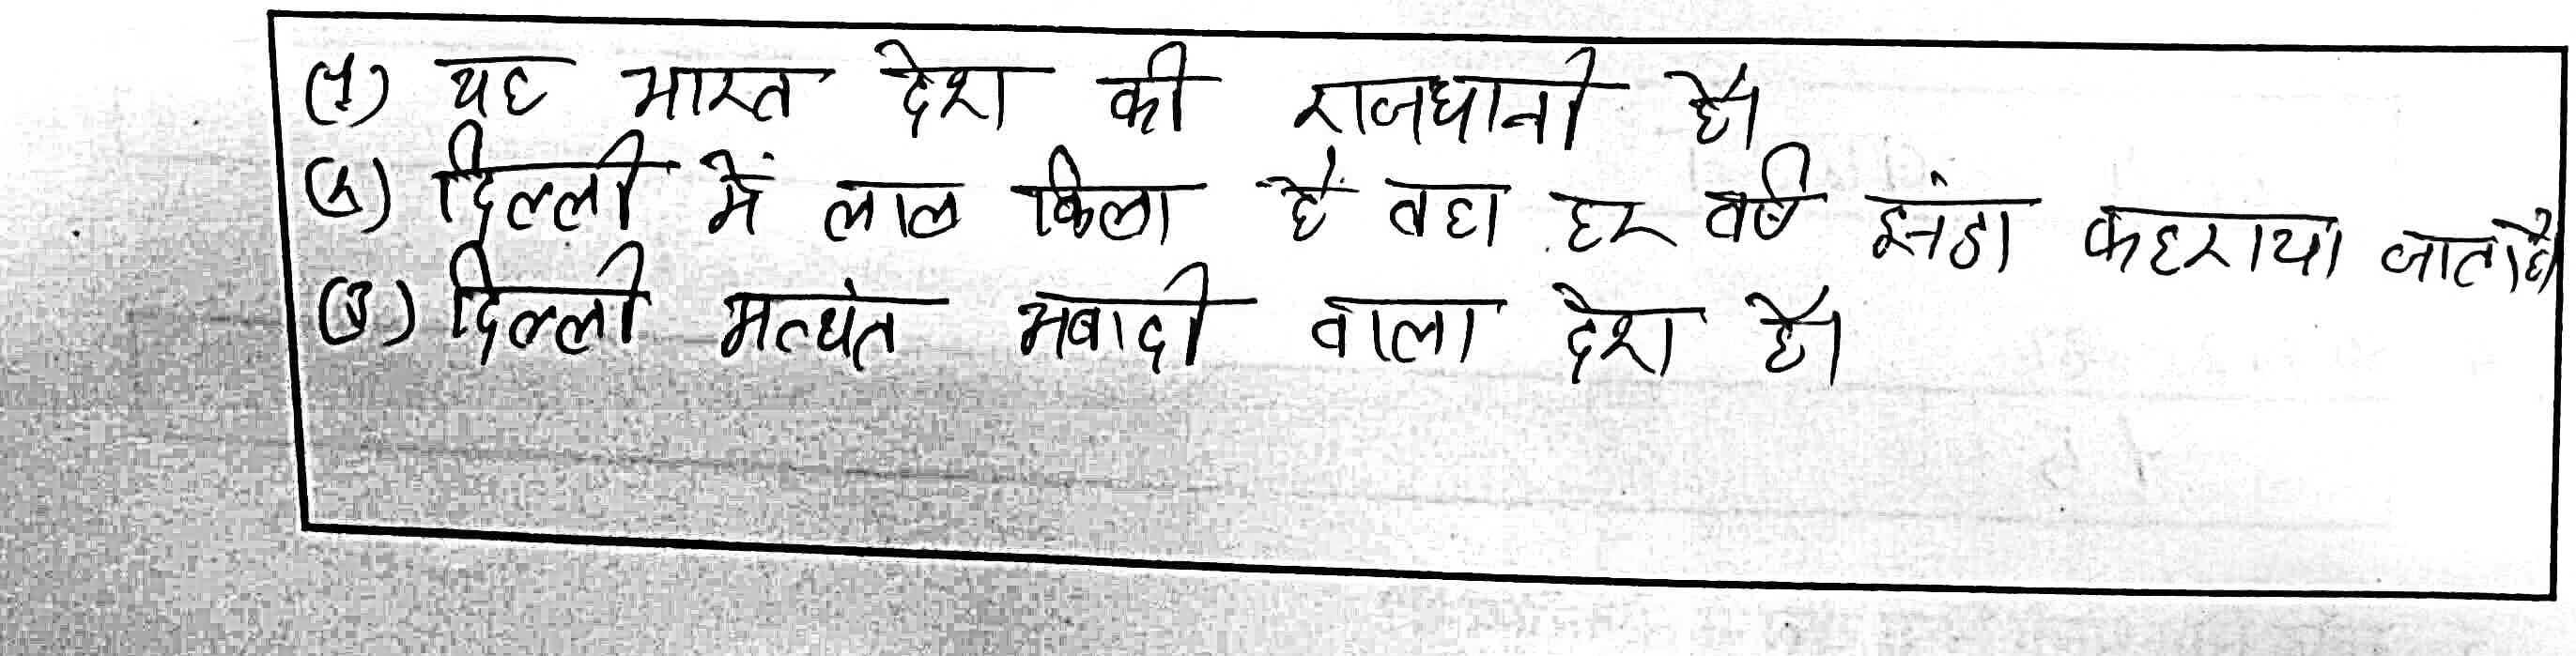 (1) यह भारत देश की राजधानी है।
(2) दिल्ली में लाल किला है वहा हर वर्ष झंडा फहराया जाता है
(3) दिल्ली अत्यंत अबादी वाला देश है।